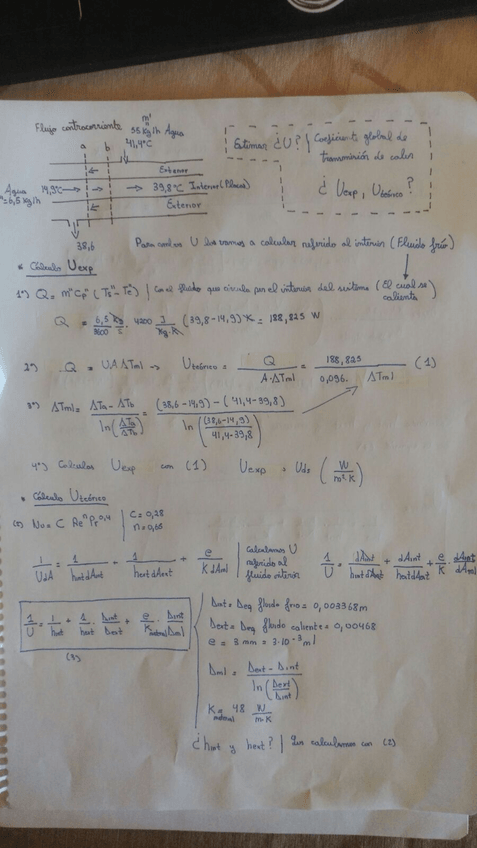 Flujo contracorriente
m'
55 Kg/h Agua
41,4ºC
a b
Exterior
Agua 14,9ºC
m''=6,5 Kg/h
39,8ºC Interior (Placas)
Exterior
38,6
Estimar ¿U? | Coeficiente global de
transmisión de calor
¿ Uexp, Uteórico ?
Para ambos U los vamos a calcular referido al interior (Fluido frío)
* Cálculo Uexp
1º) Q = m'' Cp'' (Ts'' - Te'') | Con el fluido que circula por el interior del sistema (El cual se
calienta
Q = 6,5/3600 Kg/s · 4200 J/Kg·K (39,8-14,9) ºK = 188,825 W
2º) Q = UAΔTml → Uteórico = Q/(A·ΔTml) = 188,825/(0,096· ΔTml) (1)
3º) ΔTml = (ΔTa - ΔTb)/ln(ΔTa/ΔTb) = ((38,6-14,9) - (41,4-39,8))/ln((38,6-14,9)/(41,4-39,8))
4º) Calculas Uexp con (1) Uexp = Uds (W/m²·K)
* Cálculo Uteórico
(2) Nu = C Reⁿ Pr^0,4 | C = 0,28
n = 0,65
1/UdA = 1/hintdAint + 1/hextdAext + e/KdAml | Calculamos U
referido al
fluido interior
1/U = dAint/hintdAint + dAint/hextdAext + e/K dAint/dAml
1/U = 1/hint + 1/hext · Dint/Dext + e/Kmaterial · Dint/Dml
(3)
Dint = Deq fluido frío = 0,003368m
Dext = Deq fluido caliente = 0,00468
e = 3 mm = 3·10⁻³ m
Dml = (Dext - Dint)/ln(Dext/Dint)
Kmaterial = 48 W/m·K
¿ hint y hext ? | Los calculamos con (2)